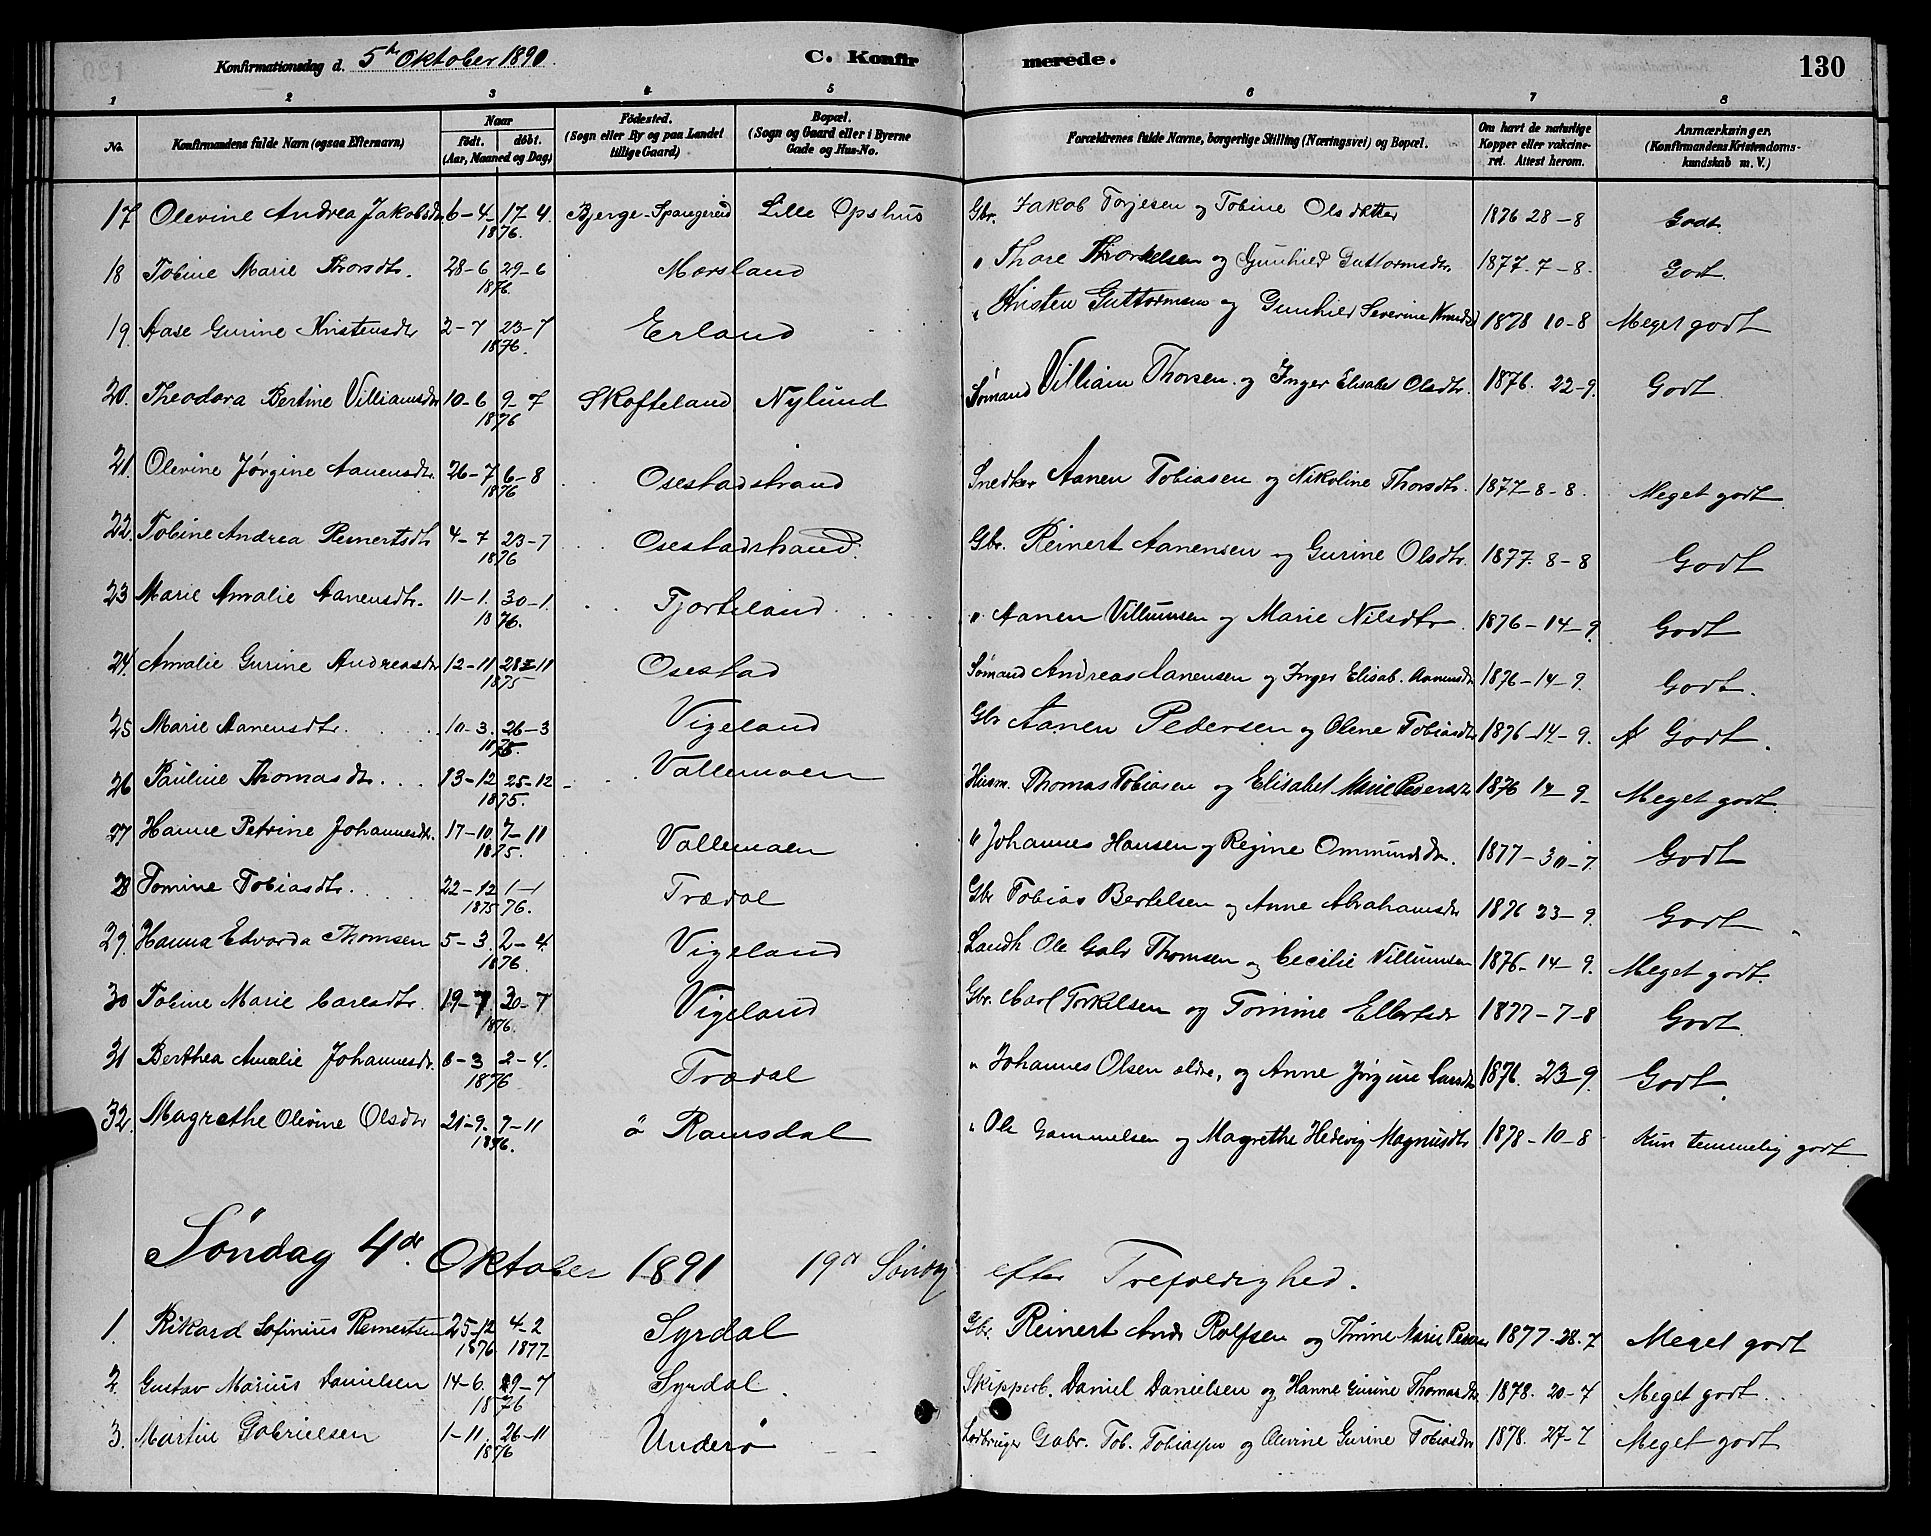 Konfirmationsdag d. 5te Oktober 1890. C. Konfirmerede. 130
1 2 3 4 5 6 7 8
No. Konfirmandens fulde Navn (ogsaa Efternavn) Naar født. døbt. (Aar, Maaned og Dag) Fødested. (Sogn eller By og paa Landet tillige Gaard) Bopæl. (Sogn og Gaard eller i Byerne Gade og Hus-No. Forældrenes fulde Navne, borgerlige Stilling (Næringsvei) og Bopæl. Om havt de naturlige Kopper eller vakcineret. Attest herom. Anmærkninger. (Konfirmandens Kristendomskundskab m. V.)
17 Olevine Andrea Jakobsdtr. 6-4 17-4. 1876. Bjerge-Spangereid Lille Opshus Gbr. Jakob Torjesen og Tobine Olsdatter 1876 28-8 Godt.
18 Tobine Marie Thorsdtr. 28-6 29-6 1876. Morsland " Thore Thorkelsen og Gunhild Guttormsdtr. 1877-7-8. Godt.
19. Aase Gurine Kristensdtr 2-7 23-7 1876. Erland " Kristen Guttormsen og Gunhild Severine 1878 10-8 Meget godt
20. Theodora Bertine Villiamsdtr 10-6 9-7 1876 Skofteland Nylund Sømand Villiam Thorsen og Inger Elisabet Olsdtr. 1876. 22-9. Godt.
21. Olevine Jørgine Aanensdtr. 26-7 6-8 1876 Osestadstrand Snedker Aanen Tobiasen og Nikoline Thorsdtr. 1877-8-8. Meget godt.
22. Tobine Andrea Reinertsdtr 4-7 23-7 1876 Osestadstrand. Gbr. Reinert Aanensen og Gurine Olsdtr. 1877. 8-8 Godt
23 Marie Amalie Aanensdtr. 11-1. 30-1. 1876. Fjorteland. " Aanen Villumsen og Marie Nilsdtr 1876-14-9. Godt
24. Amalie Gurine Andreasdtr 12-11 28-11 1875 Osestad Sømand Andreas Aanensen og Inger Elisab. Aanensdtr 1876-14-9. Godt.
25 Marie Aanensdtr. 10-3. 26-3 Vigeland Gbr Aanen Pedersen og Olene Tobiasdtr 1876-14-9. Godt.
26 Pauline Thomasdtr. 13-12 25-12 1875. Vallemoen Husm. Thomas Tobiasen og Elisabet Marie Pedersdtr 1876 14-9. Meget godt.
27 Hanne Petrine Johannesdtr. 17-10. 7-11 1875. Vallemoen " Johannes Hansen og Regine Ommundsdtr. 1877-30-7. Godt
28 Tomine Tobiasdtr. 22-12 1-1 1875 76. Trædal Gbr Tobias Bertelsen og Anne Abrahamsdtr 1876 23-9. Godt
29. Hanna Edvarda Thomsen 5-3. 2-4. 1876. Vigeland Landh. Ole Gabr Thomsen og Cecilie Villumsen 1876-14-9. Meget godt.
30 Tobine Marie Carlsdtr. 19-7 30-7 1876. Vigeland Gbr. Carl Torkelsen og Tomine Ellertsdtr 1877-7-8 Godt.
31 Berthea Amalie Johannesdtr. 6-3 2-4. 1876 Trædal " Johannes Olsen ældre, og Anne Jørgine Larsdtr 1876. 23-9. Godt.
32. Magrethe Olevine Olsdtr 21-9. 7-11 1876. ø Ramsdal " Ole Gammelsen og Magrethe Hedevig Magnusdtr 1878-10-8 Kun temmelig godt.
Søndag 4de. Oktober 1891 19de Søndag efter Trefoldighed.
1. Rikard Sofinius Reinertsen 25-12 4-2 1876 1877- Syrdal Gbr. Reinert Andr Rolfsen og Thrine Marie 1877-28.7 Meget godt
2. Gustav Marius Danielsen 14-6. 9-7 1876 Syrdal. Skipperb. Daniel Danielsen og Hanne Gurine Thomasdtr 1878. 20-7 Meget godt.
3. Martin Gabrielsen 1-11. 26-11 1876 Underø Gabr. Tob. Tobiassen og Olevine Gurine Tobiasdtr 1878. 27-7 Meget godt